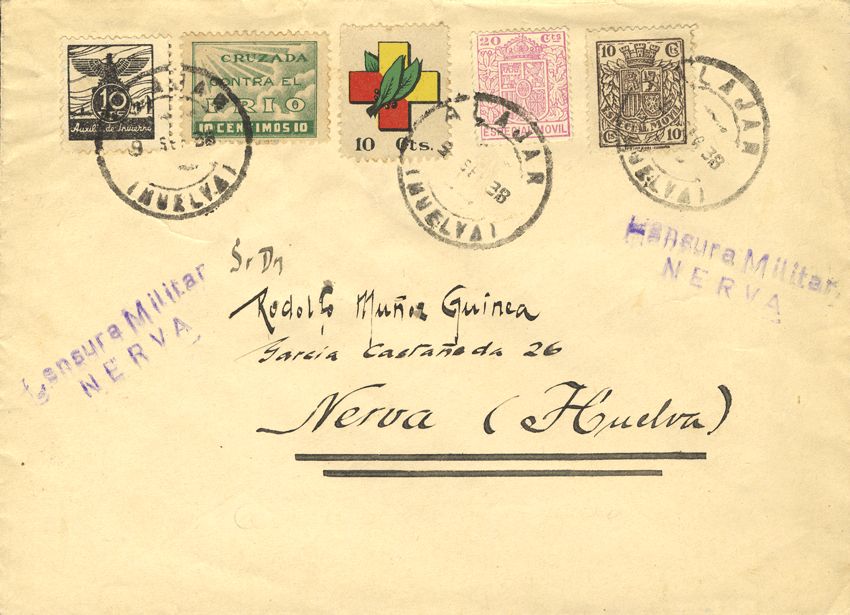 10
Auxilio de Invierno
CRUZADA
CONTRA EL
FRIO
10 CENTIMOS 10
10 Cts.
20 Cts
ESPECIAL MOVIL
10 Cs
ESPECIAL MOVIL
Cs 10
ALAJAR
9 SEP 38
(HUELVA)
ALAJAR
9 SEP 38
(HUELVA)
ALAJAR
SEP 38
(HUELVA)
Censura Militar
NERVA
Censura Militar
NERVA
Sr Dn
Rodolfo Muñoz Guinea
García Castañeda 26
Nerva (Huelva)